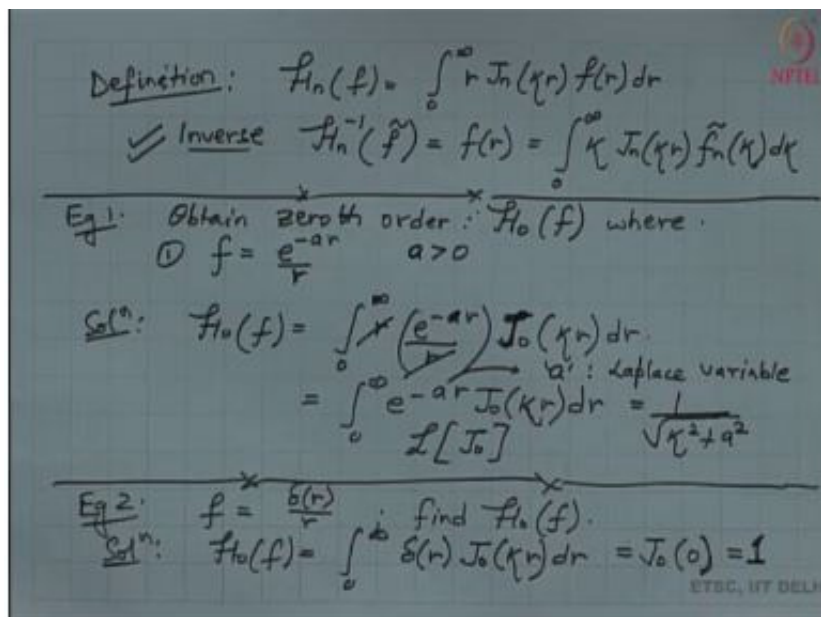 NPTEL
Definition: ℋn(f) = ∫₀^∞ r Jn(κr) f(r) dr
✓ Inverse ℋn⁻¹(f̃) = f(r) = ∫₀^∞ κ Jn(κr) f̃n(κ) dκ
Eg 1. Obtain zeroth order : ℋ₀(f) where .
① f = e^{-ar}/r a > 0
Solⁿ: ℋ₀(f) = ∫₀^∞ r (e^{-ar}/r) J₀(κr) dr.
'a' : Laplace variable
= ∫₀^∞ e^{-ar} J₀(κr) dr = 1/√(κ²+a²)
ℒ[J₀]
Eg 2. f = δ(r)/r . find ℋ₀(f).
Solⁿ: ℋ₀(f) = ∫₀^∞ δ(r) J₀(κr) dr = J₀(0) = 1
ETSC, IIT DELH